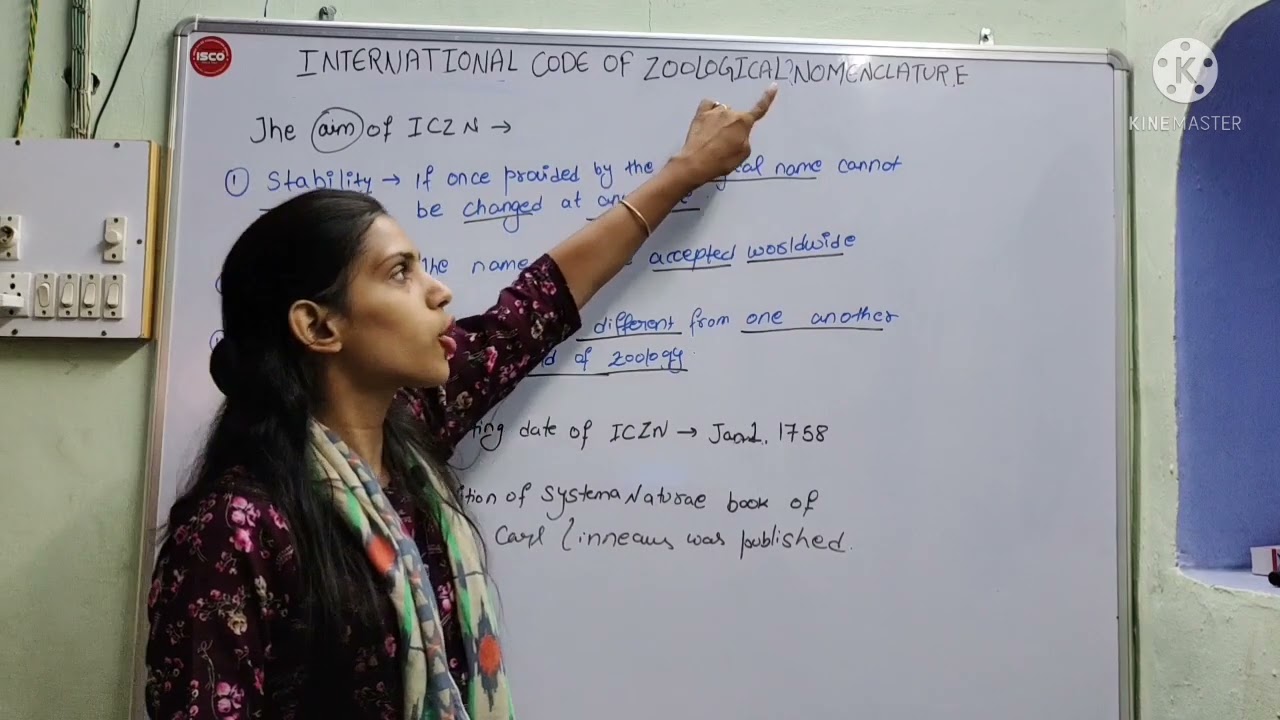 ISCO
INTERNATIONAL CODE OF ZOOLOGICAL NOMENCLATURE
K
KINEMASTER
The aim of ICZN →
① Stability → If once provided by the name cannot
be changed at
the name accepted worldwide
different from one another
of zoology
date of ICZN → Jan 1, 1758
of Systema Naturae book of
Carl Linneaus was published.